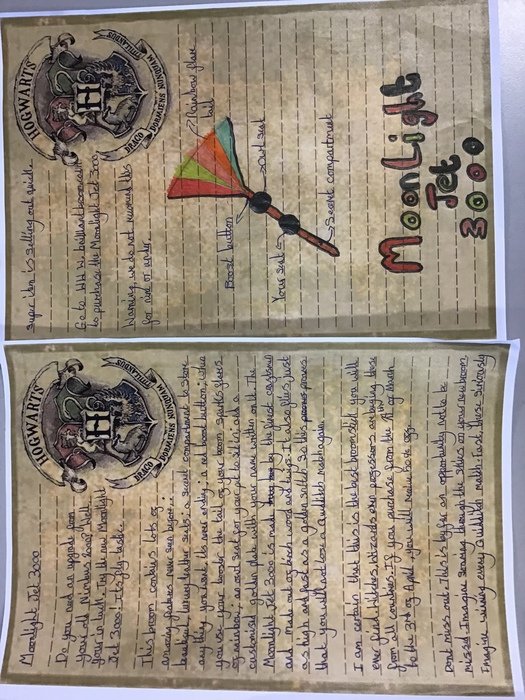 HOGWARTS
DRACO DORMIENS NUNQUAM TITILLANDUS
Moonlight Jet 3000
Do you need an upgrade from
your old Nimbus 2000? Well
your in luck. Try the new Moonlight
Jet 3000! Its fly-tastic.
This broom contains lots of
amazing features never seen before:
leather seats; a secret compartment to store
anything you want its never ending; a red boost button; when
you use your booster the tail of your broom sparks flares
of rainbow; an owl seat for your pet to sit in; and a
customised golden plate with your name written on it. The
Moonlight Jet 3000 is made by the finest
and made out of birch wood and twigs. It also flies just
as high and fast as a golden snitch so this proves
that you will not lose a Quidditch match again.
I am certain that this is the best broomstick you will
ever find. Witches, wizards even professors are buying these
from all countries. If you purchase from the of March
to the 3rd of April you will receive 60% off.
Dont miss out. This is by far an opportunity not to be
missed. Imagine soaring through the skies on your new broom.
Imagine winning every Quidditch match. Fast seriously
HOGWARTS
DRACO DORMIENS NUNQUAM TITILLANDUS
super item is selling out quick.
Go to
to purchase the Moonlight Jet 3000.
Warning, we do not recommend this
for nine or under.
Rainbow flare
tail
Boost button
Owl seat
Your seat
Secret compartment
MoonLight
Jet
3000